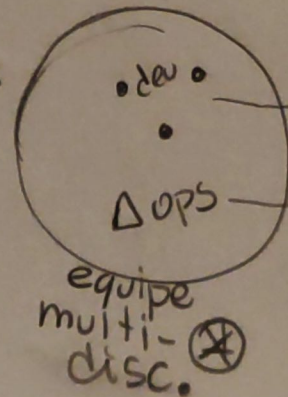 dev
Δ OPS
equipe
multi-
disc.